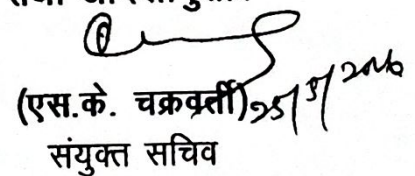 (एस.के. चक्रवर्ती) 25/5/2016
संयुक्त सचिव